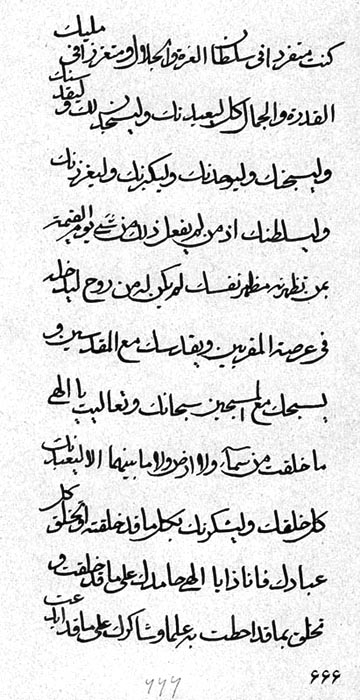 كنت متفردا في سلطان العزة والجلال ومتعززا في مليك
القدرة والجمال كل ليعبدنك وليسجدن لك وليقدسنك
وليسبحنك وليوحدنك وليكبرنك وليعززنك
وليسلطنك اذ من لم يفعل ذلك من شيء يوم القيمة
بمن تظهرنه مظهر نفسك لم يكن له من روح ليدخله
في عرصة المقربين ويقدسك مع المقدسين و
يسبحك مع المسبحين سبحانك وتعاليت يا الهي
ما خلقت من سماء ولا ارض ولا ما بينهما الا ليعبدنك
كل خلقك وليشكرنك بكل ما قد خلقته كل
عبادك فانا ذا يا الهي حامدك على ما قد خلقت و
تخلق بما قد احطت به علما وشاكرك على ما قد
٦٦٦